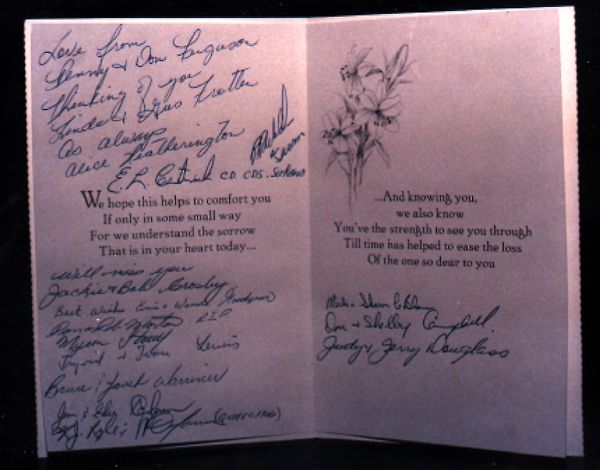 Love from
Lenny & Don Ferguson
Thinking of you
Linda & Gus Trotter
As always
Alice Leatherington
E. L.
We hope this helps to comfort you
If only in some small way
For we understand the sorrow
That is in your heart today...
Will miss you
Jackie & Bob Crosby
Best Wishes Eric & Wanda
R.I.P
Myron
Ingrid & Lewis
Bruce & Janet Warriner
Jim &
...And knowing you,
we also know
You've the strength to see you through
Till time has helped to ease the loss
Of the one so dear to you
& Sharon
Don & Shelley Campbell
Judy & Gerry Douglass